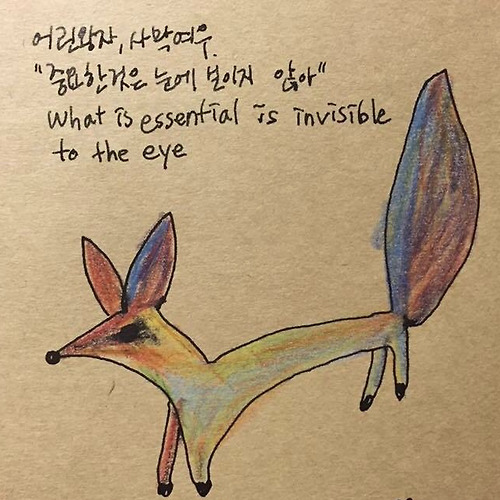 어린왕자, 사막여우.
"중요한것은 눈에 보이지 않아"
What is essential is invisible
to the eye